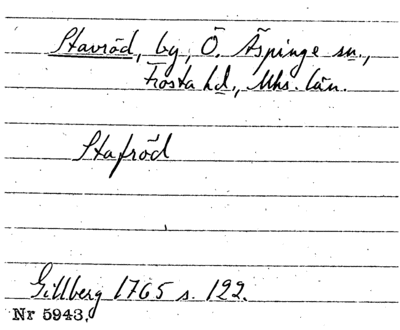 Stavröd, by, Ö. Äspinge sn.,
Frosta hd., Mhs. län.
Stafröd
Gillberg 1765 s. 122.
Nr 5943.